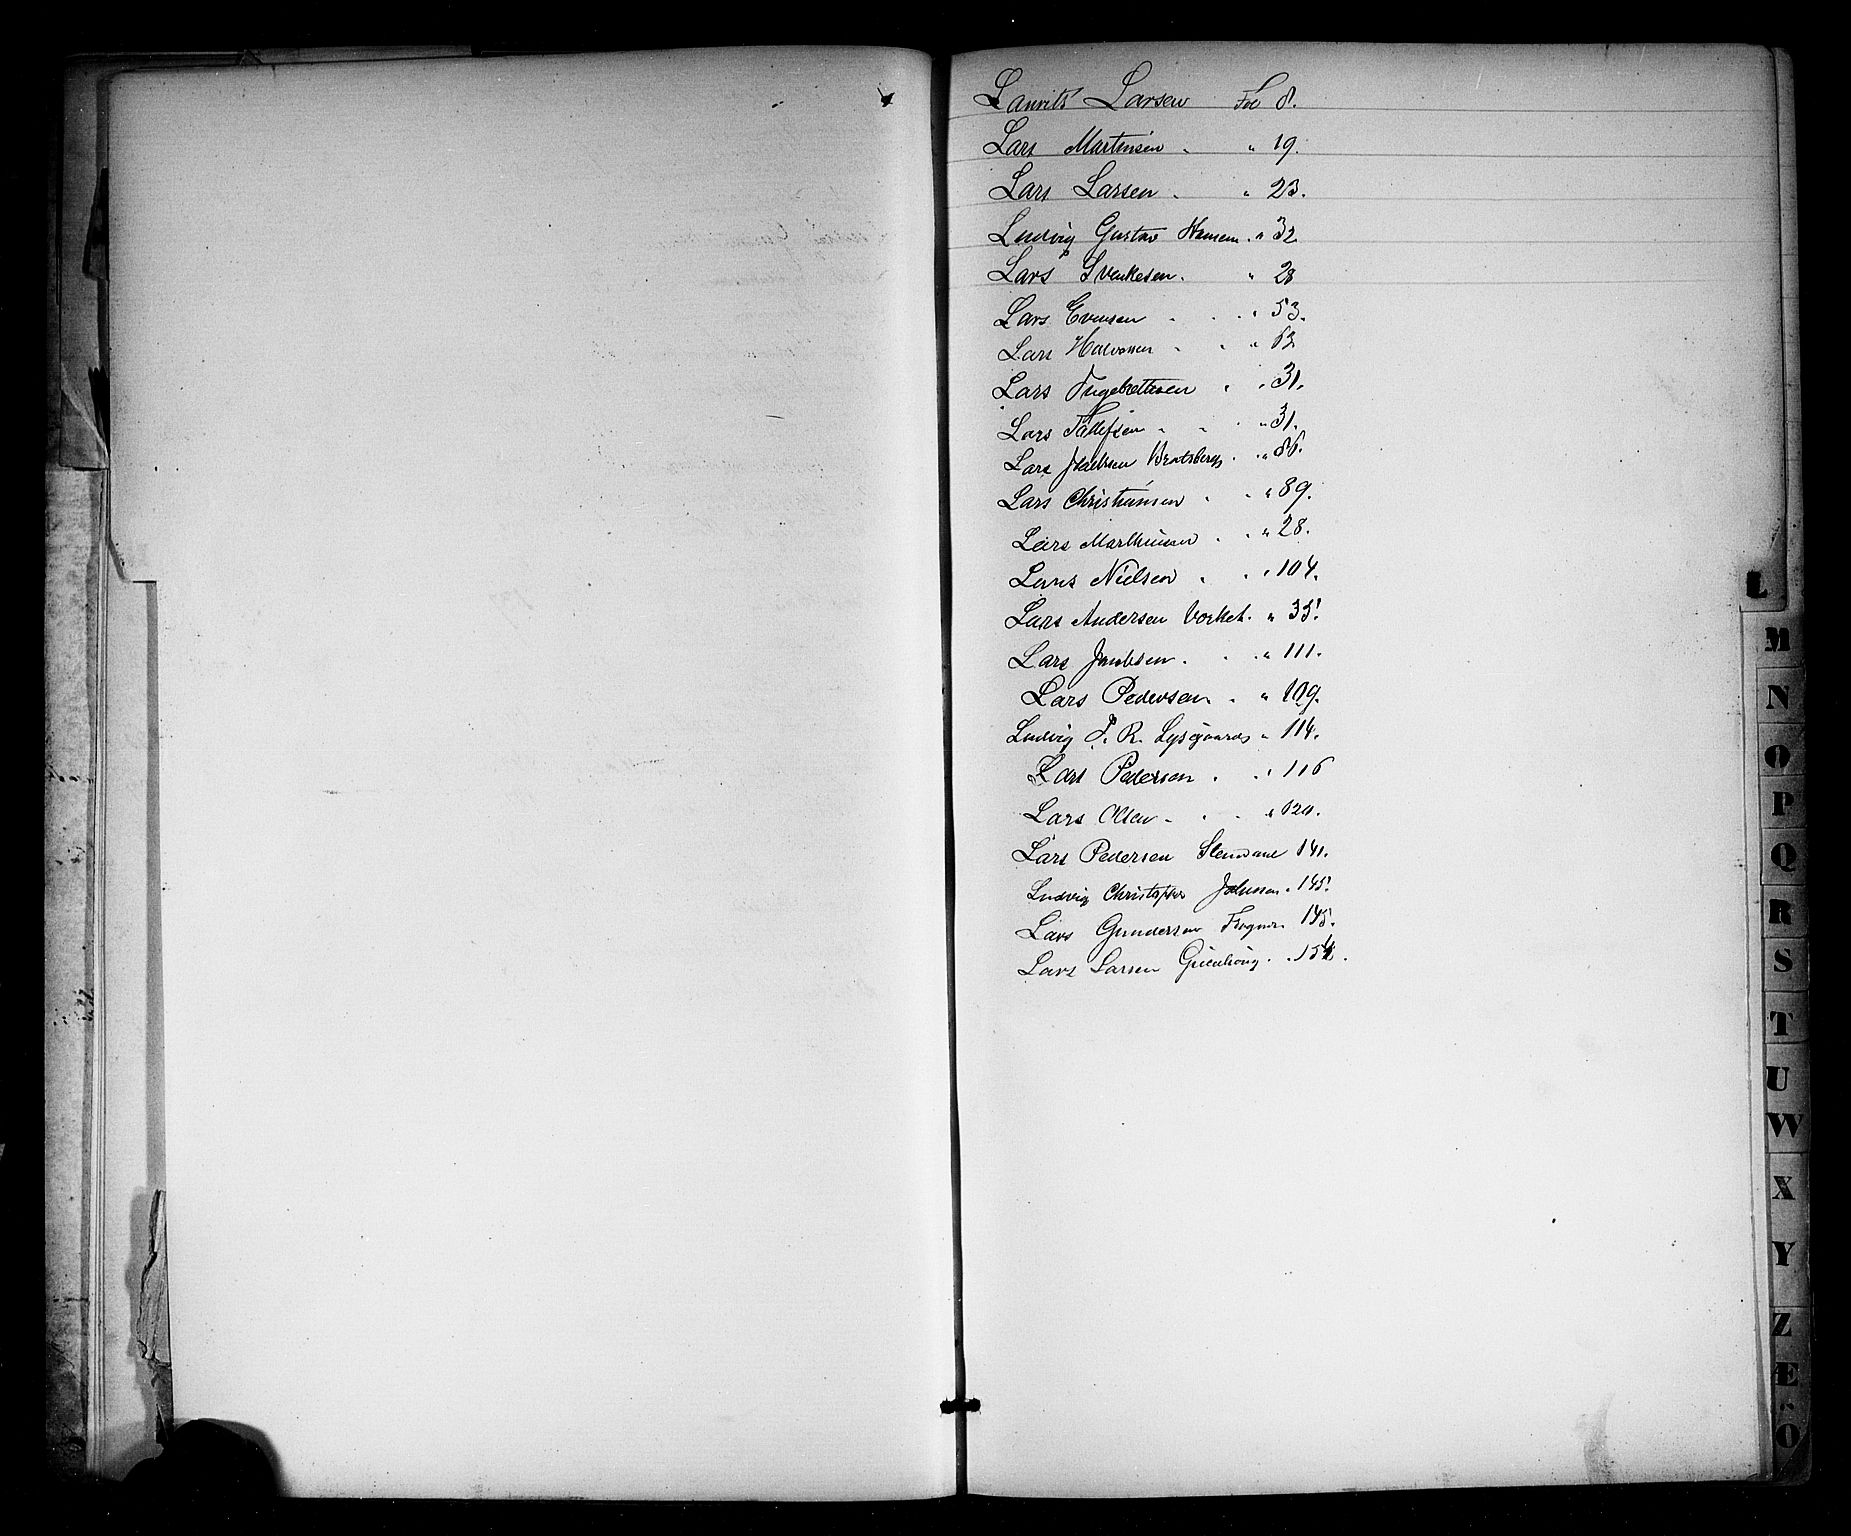 Laurits Larsen Fol 8.
Lars Martinsen . " 19.
Lars Larsen . " 23.
Ludvig Gustav Hansen . " 32
Lars Svenkesen . " 28
Lars Evensen . . . " 53.
Lars Halvorsen . . " 63
Lars Ingebretsen . " 31.
Lars Tollefsen . . . " 31.
Lars Jacobsen Bratsberg . . " 86.
Lars Christiansen . . " 89.
Lars Marthinsen . . " 28.
Lars Nielsen . . " 104.
Lars Andersen " 35.
Lars Jacobsen . . . " 111.
Lars Pedersen . " 109.
Ludvig P. R. Lysgaard " 114.
Lars Pedersen . . " 116
Lars Olsen . . . " 120.
Lars Pedersen 141.
Ludvig Christopher Johnsen . 145.
Lars Gundersen Fogner 145.
Lars Larsen . . 154.
L
M
N
O
P
Q
R
S
T
U
W
X
Y
Z
Æ
Ö